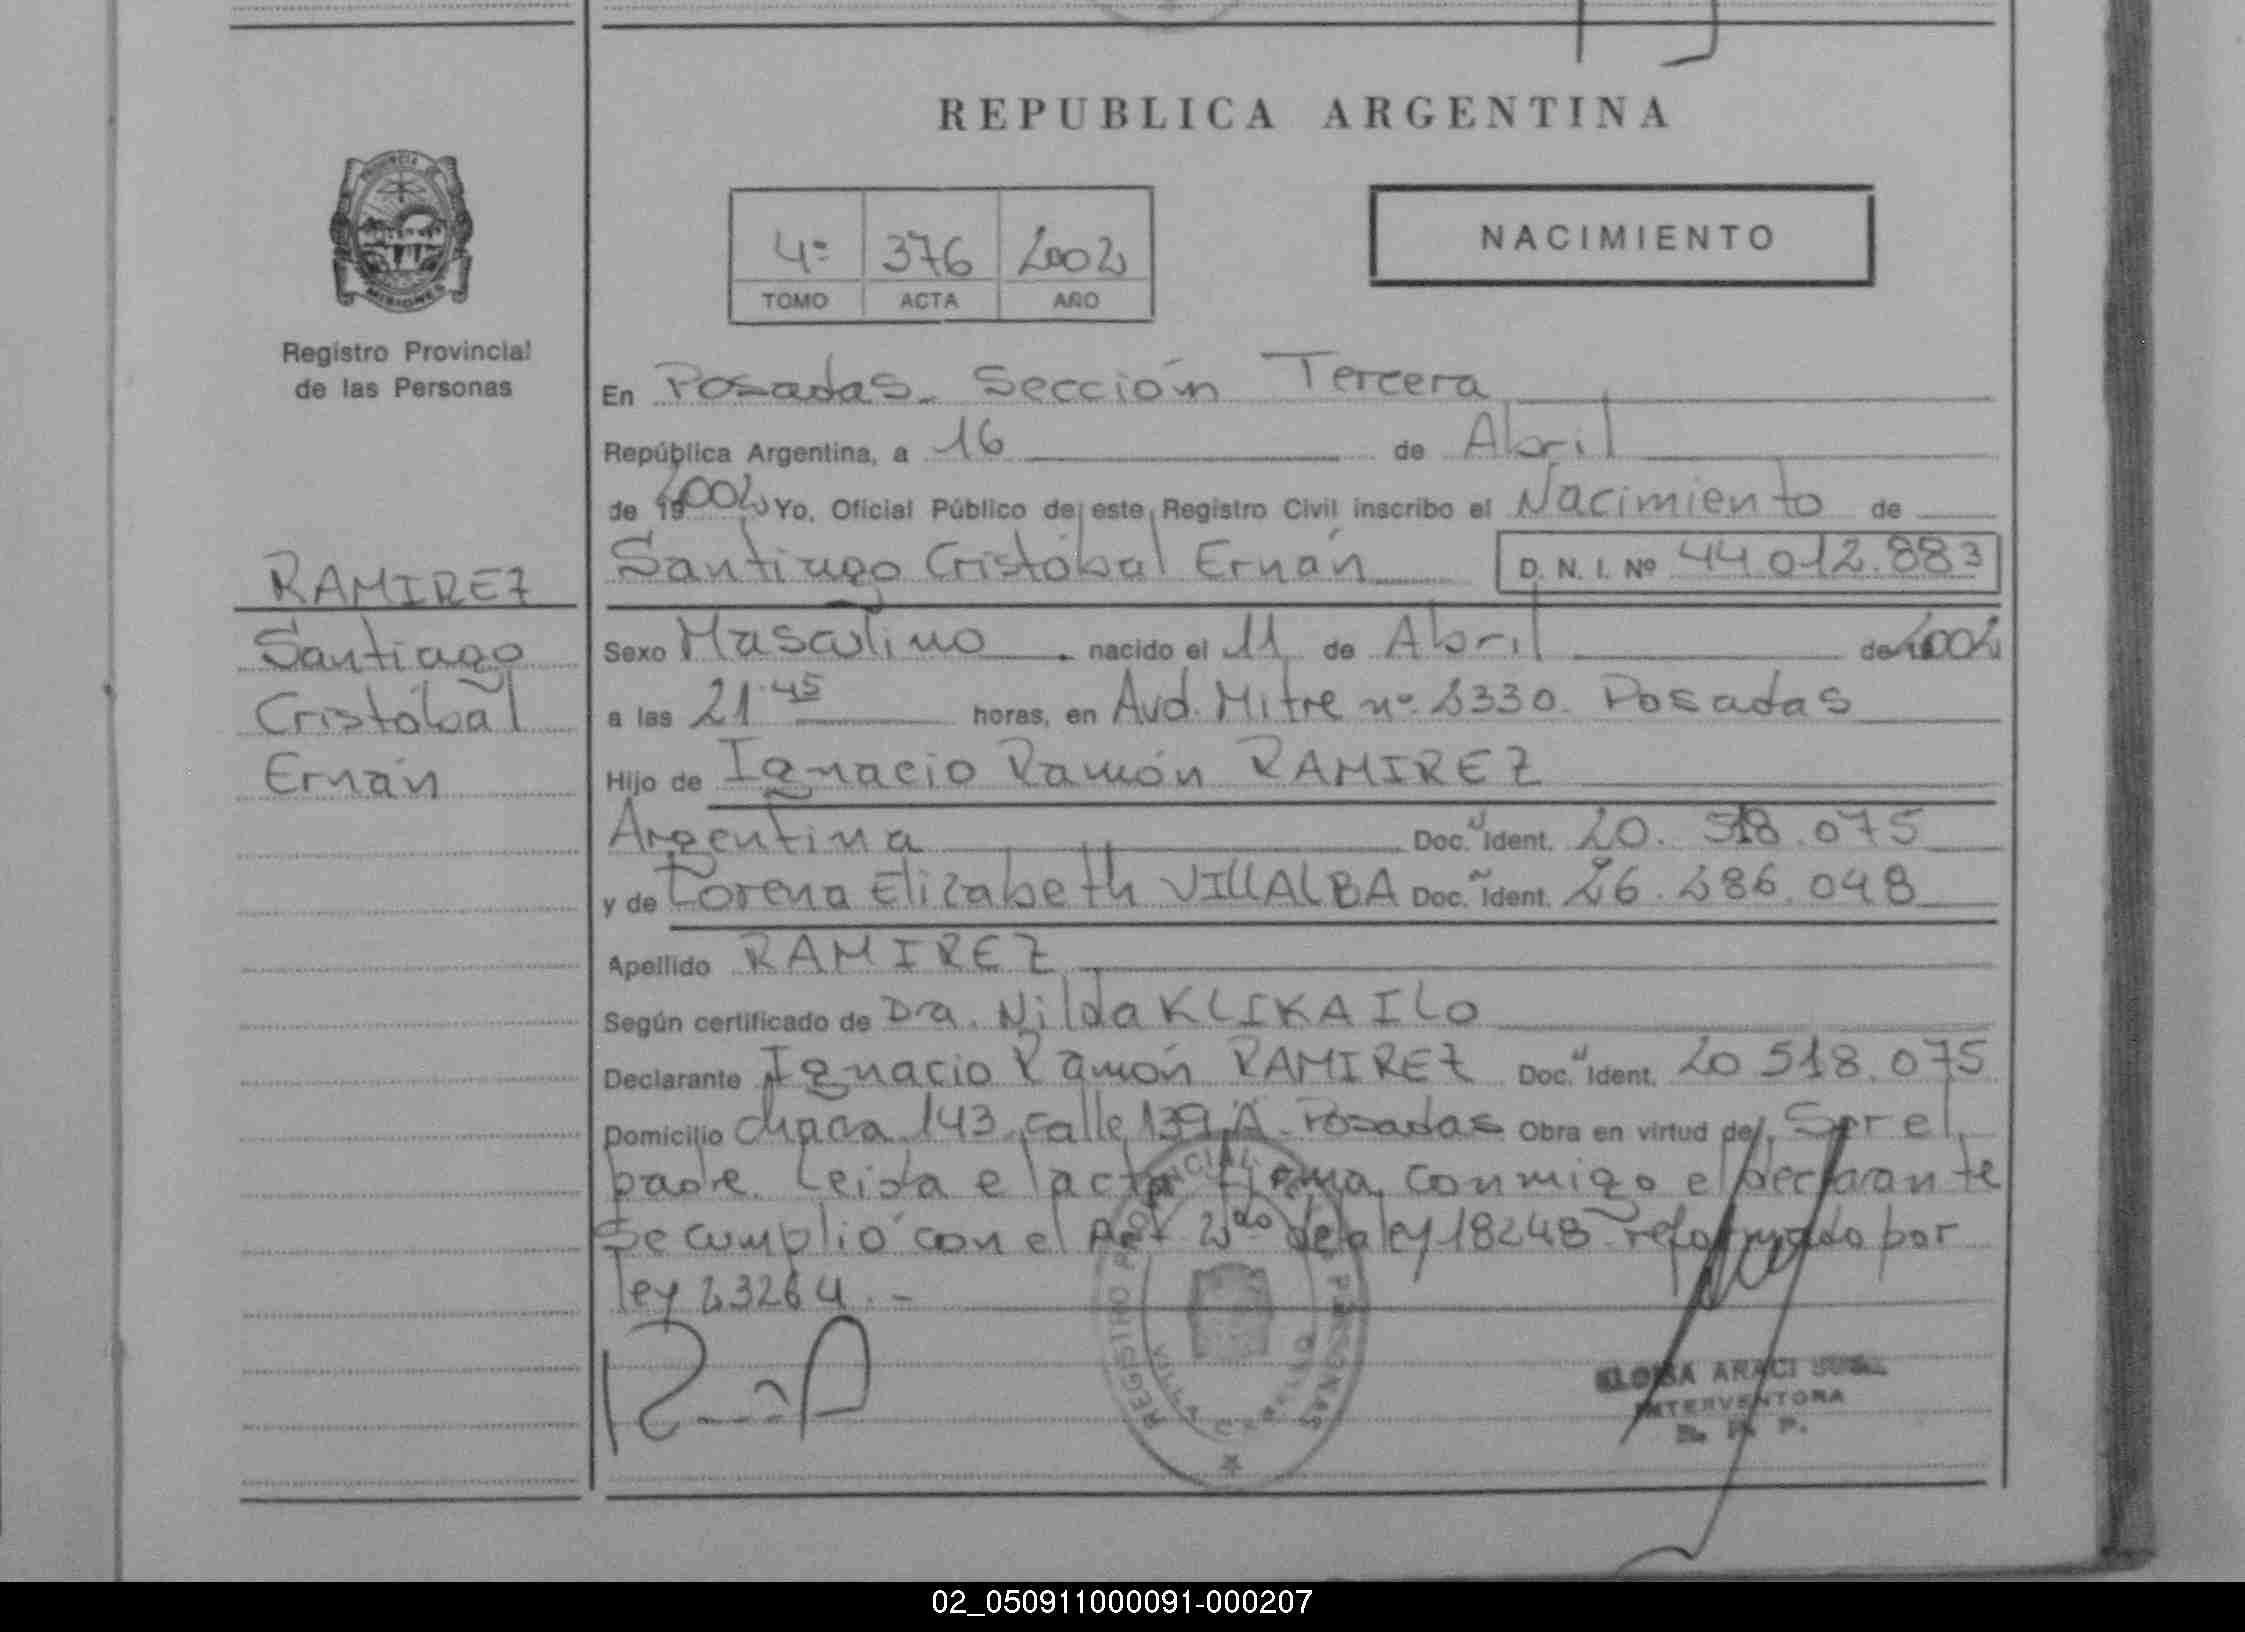 REPUBLICA ARGENTINA
PROVINCIA DE
MISIONES
Registro Provincial
de las Personas
4º 376 2002
TOMO ACTA AÑO
NACIMIENTO
En Posadas. Sección Tercera
República Argentina, a 16 de Abril
de 19 2002 Yo, Oficial Público de este Registro Civil inscribo el Nacimiento de
Santiago Cristóbal Ernán D. N. I. Nº 44 012.883
RAMIREZ
Santiago
Cristóbal
Ernán
Sexo Masculino nacido el 11 de Abril de 2002
a las 21.45 horas, en Avd. Mitre nº. 2330. Posadas
Hijo de Ignacio Ramón RAMIREZ
Argentina Doc. Ident. 20. 518.075
y de Lorena Elizabeth VILLALBA Doc. Ident. 26.286.048
Apellido RAMIREZ
Según certificado de Dra. Nilda KLIKAILO
Declarante Ignacio Ramón RAMIREZ Doc. Ident. 20 518.075
Domicilio chacra 143 calle 139 A. Posadas Obra en virtud de Ser el
padre. Leida el acta firma conmigo el declarante
Se cumplió con el Art 2do de la ley 18248 reformado por
ley 23264.-
REGISTRO PROVINCIAL DE LAS PERSONAS
ARACI
INTERVENTORA
R. P. P.
02_050911000091-000207